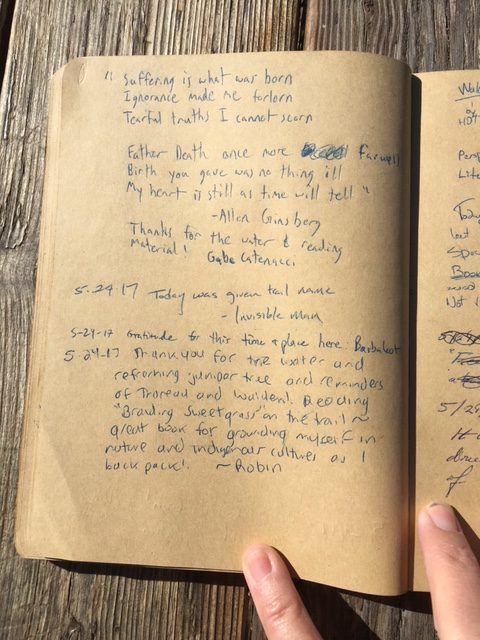 " Suffering is what was born
Ignorance made me forlorn
Tearful truths I cannot scorn
Father Death once more farwell
Birth you gave was no thing ill
My heart is still as time will tell "
-Allen Ginsberg
Thanks for the water & reading
material! Gabe Catenacci
5.24.17 Today was given trail name
- Invisible Man
5-24-17 Gratitude for this time & place here.
5.24.17 Thank you for the water and
refreshing juniper tree and reminders
of Thoreau and Walden! Reading
"Braiding Sweetgrass" on the trail ~
great book for grounding myself in
nature and indigenous cultures as I
back pack! ~ Robin
Today
lost
Book
Not
5/24
of